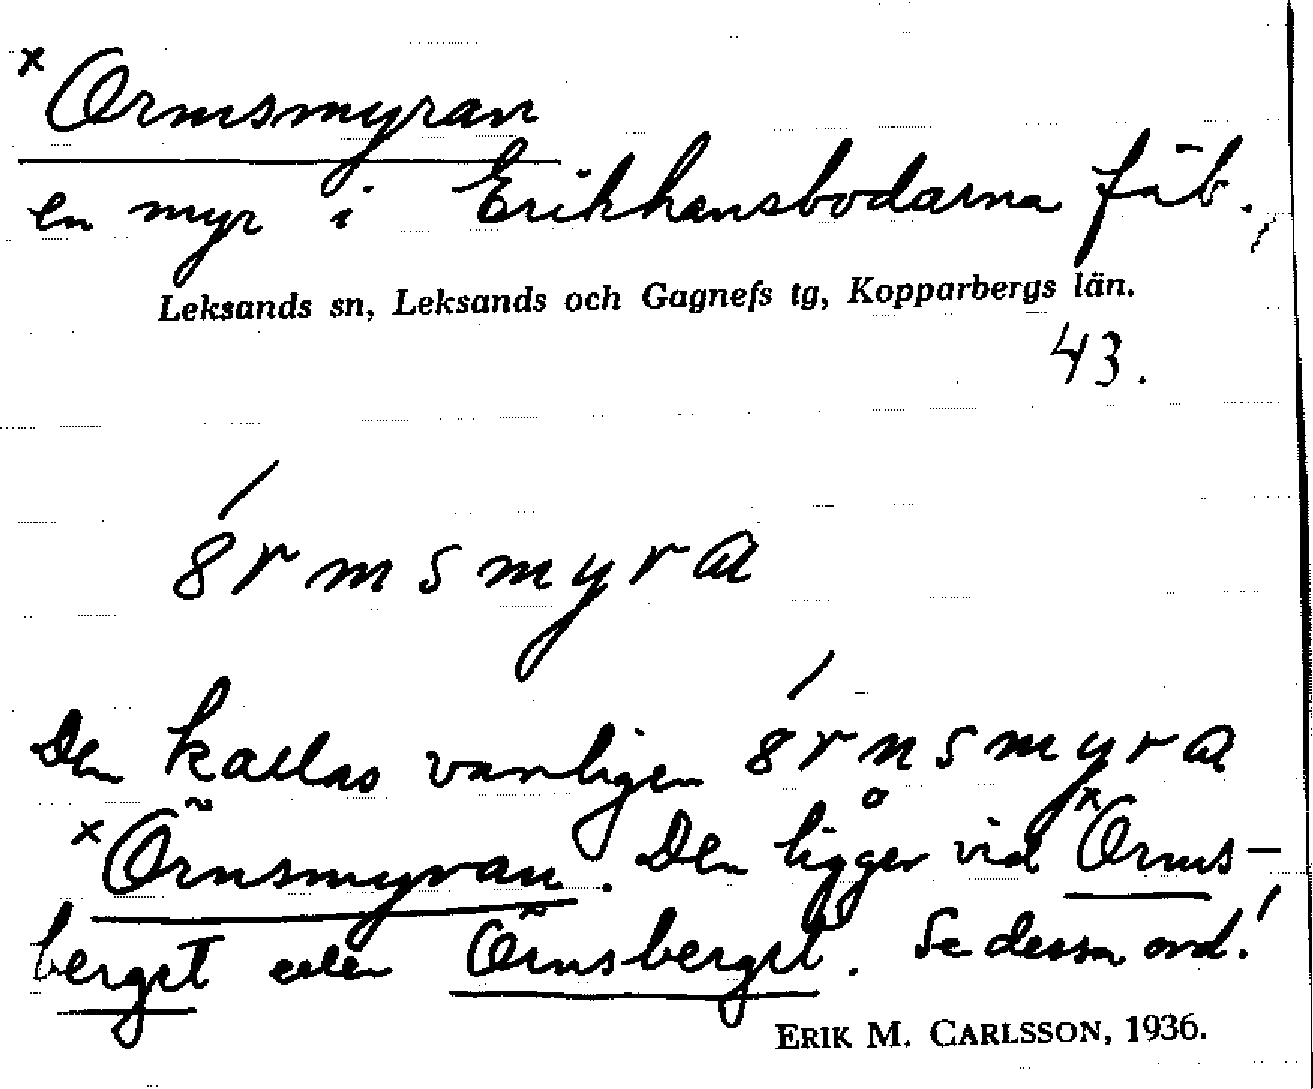 ˣOrmsmyran
en myr i Erikhansbodarna fäb.,
Leksands sn, Leksands och Gagnefs tg, Kopparbergs län.
43.
8rmsmyra
Den kallas vanligen 8rnsmyra
ˣÖrnsmyran. Den ligger vid ˣOrms-
berget eller Örnsberget. Se dessa ord!
ERIK M. CARLSSON, 1936.